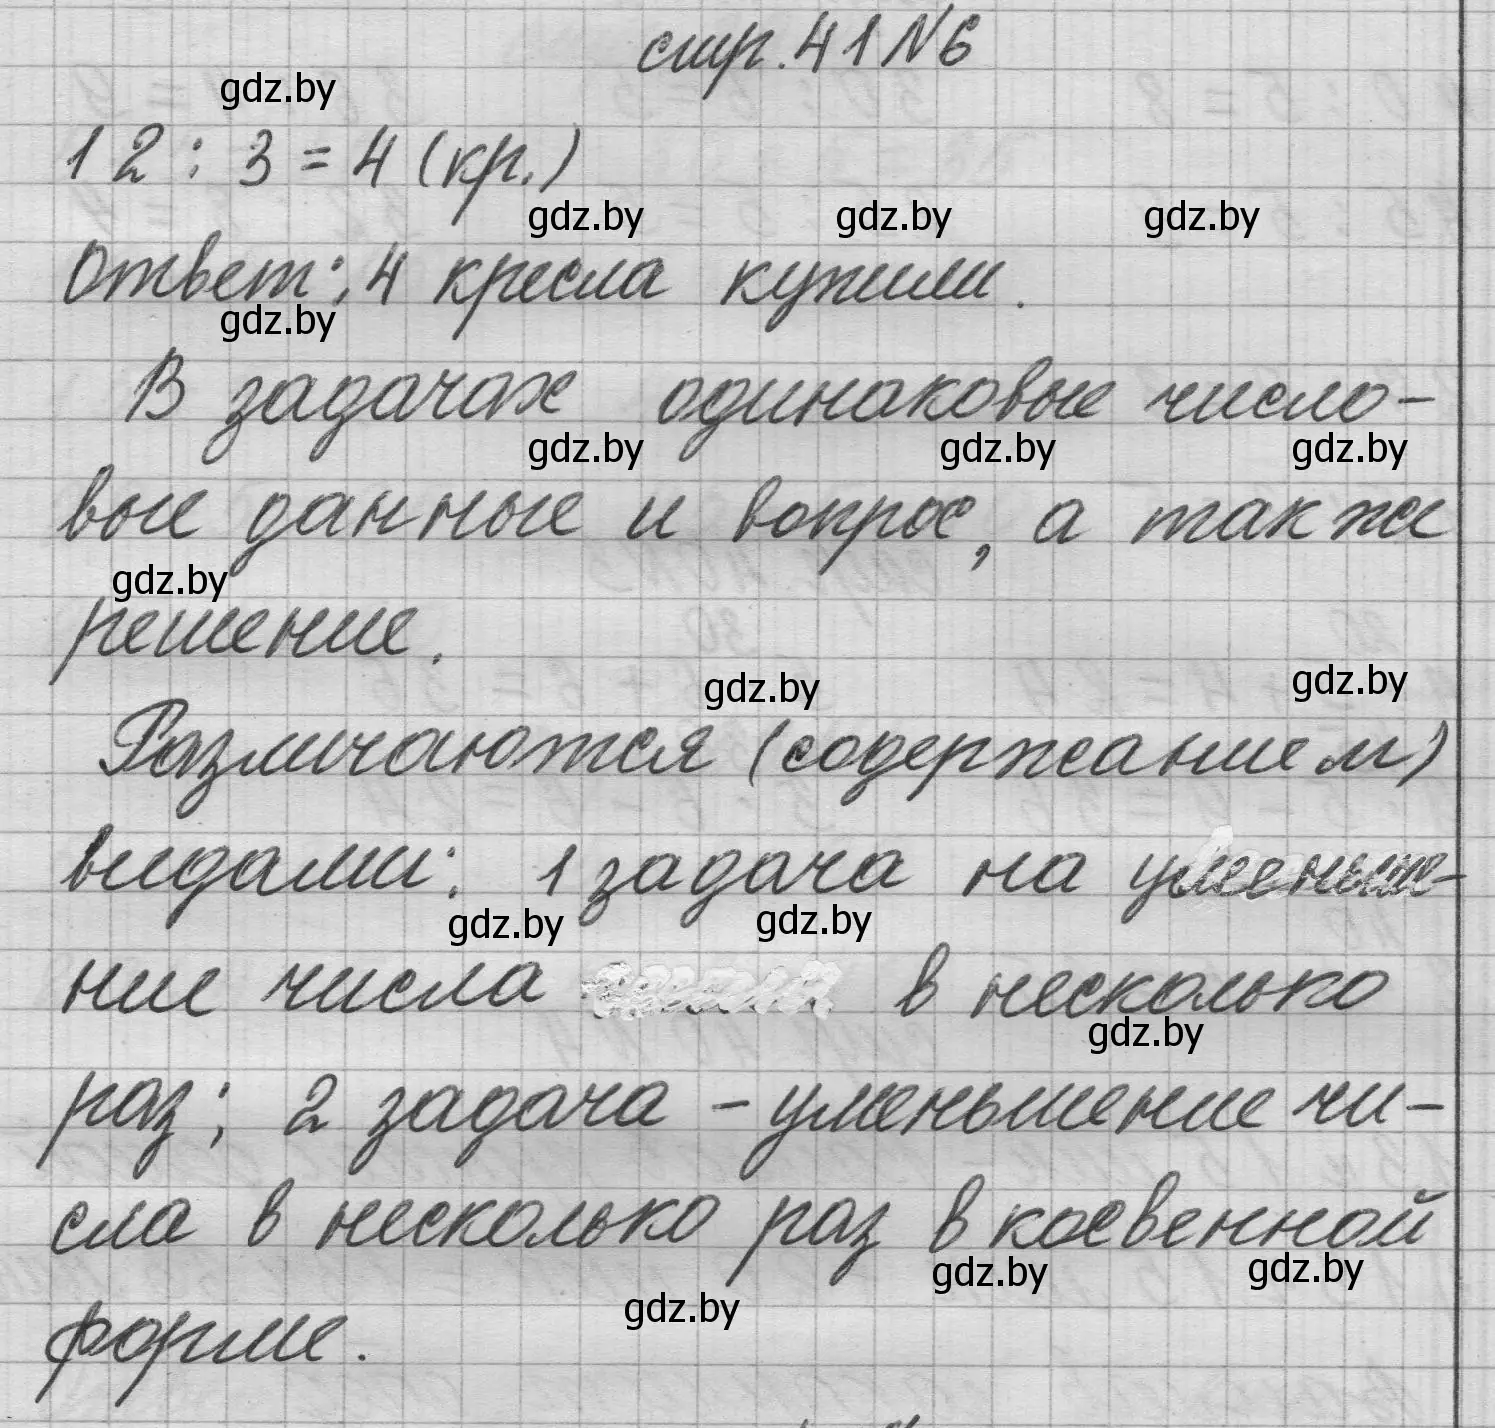 стр. 41 №6
gdz.by
12 : 3 = 4 (кр.)
gdz.by gdz.by gdz.by
Ответ: 4 кресла купили.
gdz.by
В задачах одинаковые число-
gdz.by gdz.by gdz.by
вые данные и вопрос, а также
gdz.by
решение.
gdz.by gdz.by
Различаются (содержанием)
видами: 1 задача на
gdz.by gdz.by
ние числа в несколько
gdz.by
раз; 2 задача - уменьшение чи-
сла в несколько раз в косвенной
gdz.by gdz.by
gdz.by
форме.